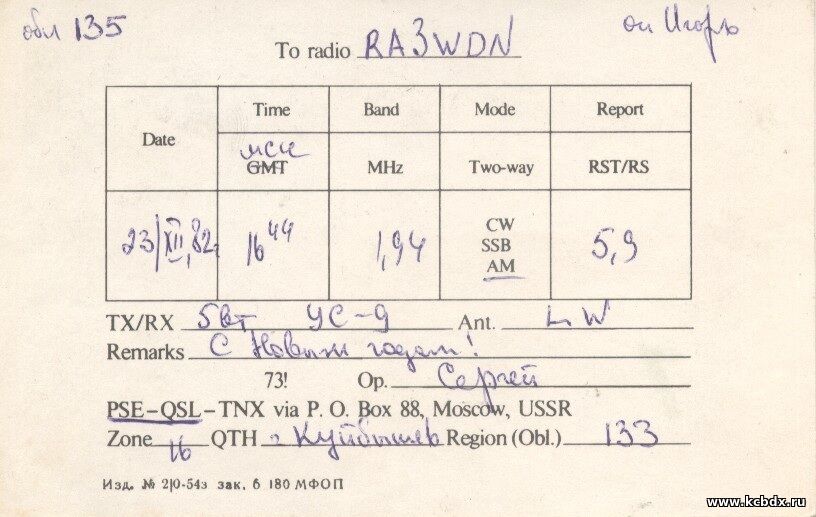 обл 135
оп Игорь
To radio RA3WDN
Date Time Band Mode Report
мск
GMT MHz Two-way RST/RS
23/XII,82г 16⁴⁴ 1,94 CW SSB AM 5,9
TX/RX 5вт УС-9 Ant. LW
Remarks С Новым годом!
73! Op. Сергей
PSE-QSL-TNX via P. O. Box 88, Moscow, USSR
Zone 16 QTH г Куйбышев Region (Obl.) 133
Изд. № 2|0-54з зак. 6 180 МФОП
www.kcbdx.ru